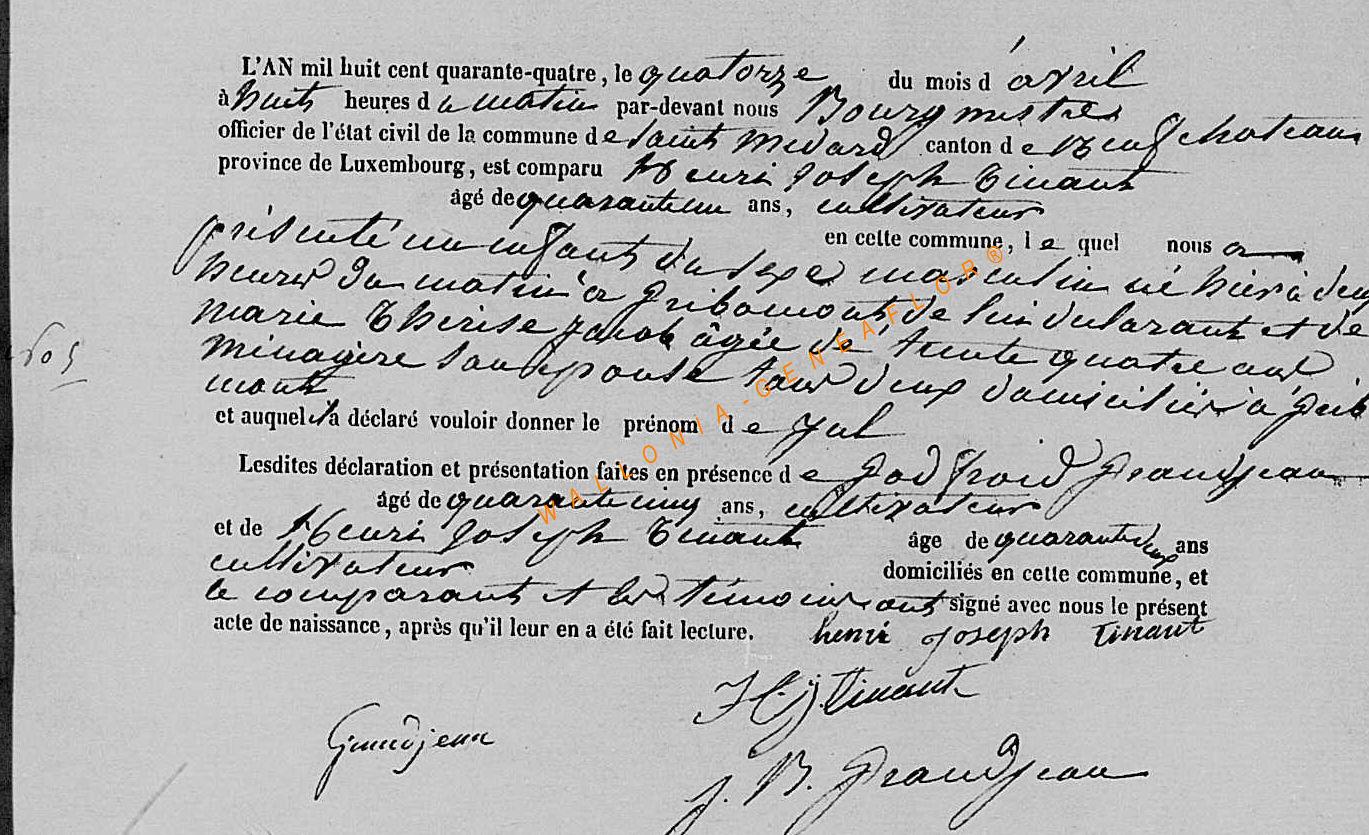 L'AN mil huit cent quarante-quatre, le quatorze du mois d'avril
à huit heures du matin par-devant nous Bourgmestre
officier de l'état civil de la commune de Saint Medard canton de Neufchateau
province de Luxembourg, est comparu Henri Joseph Tinant
âgé de quarante un ans, cultivateur
en cette commune, lequel nous a
présenté un enfant du sexe masculin né hier à deux
heures du matin à Gribomont de lui déclarant et de
marie Thérèse Jacob âgée de trente quatre ans
ménagère son épouse tous deux domiciliés à Gribo
mont
et auquel il a déclaré vouloir donner le prénom de
Lesdites déclaration et présentation faites en présence de Godfroid Grandjean
âgé de quarante cinq ans, cultivateur
et de Henri Joseph Tinant âge de quarante deux ans
cultivateur domiciliés en cette commune, et
le comparant et les témoins ont signé avec nous le présent
acte de naissance, après qu'il leur en a été fait lecture. henri Joseph Tinant
H. J. Tinant
Grandjean
J. B. Grandjean
WALLONIA-GENEAFLOR®